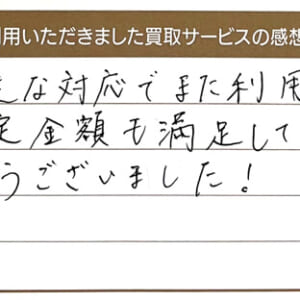 用いただきました買取サービスの感想
な対応でまた利用
定金額も満足して
うございました!